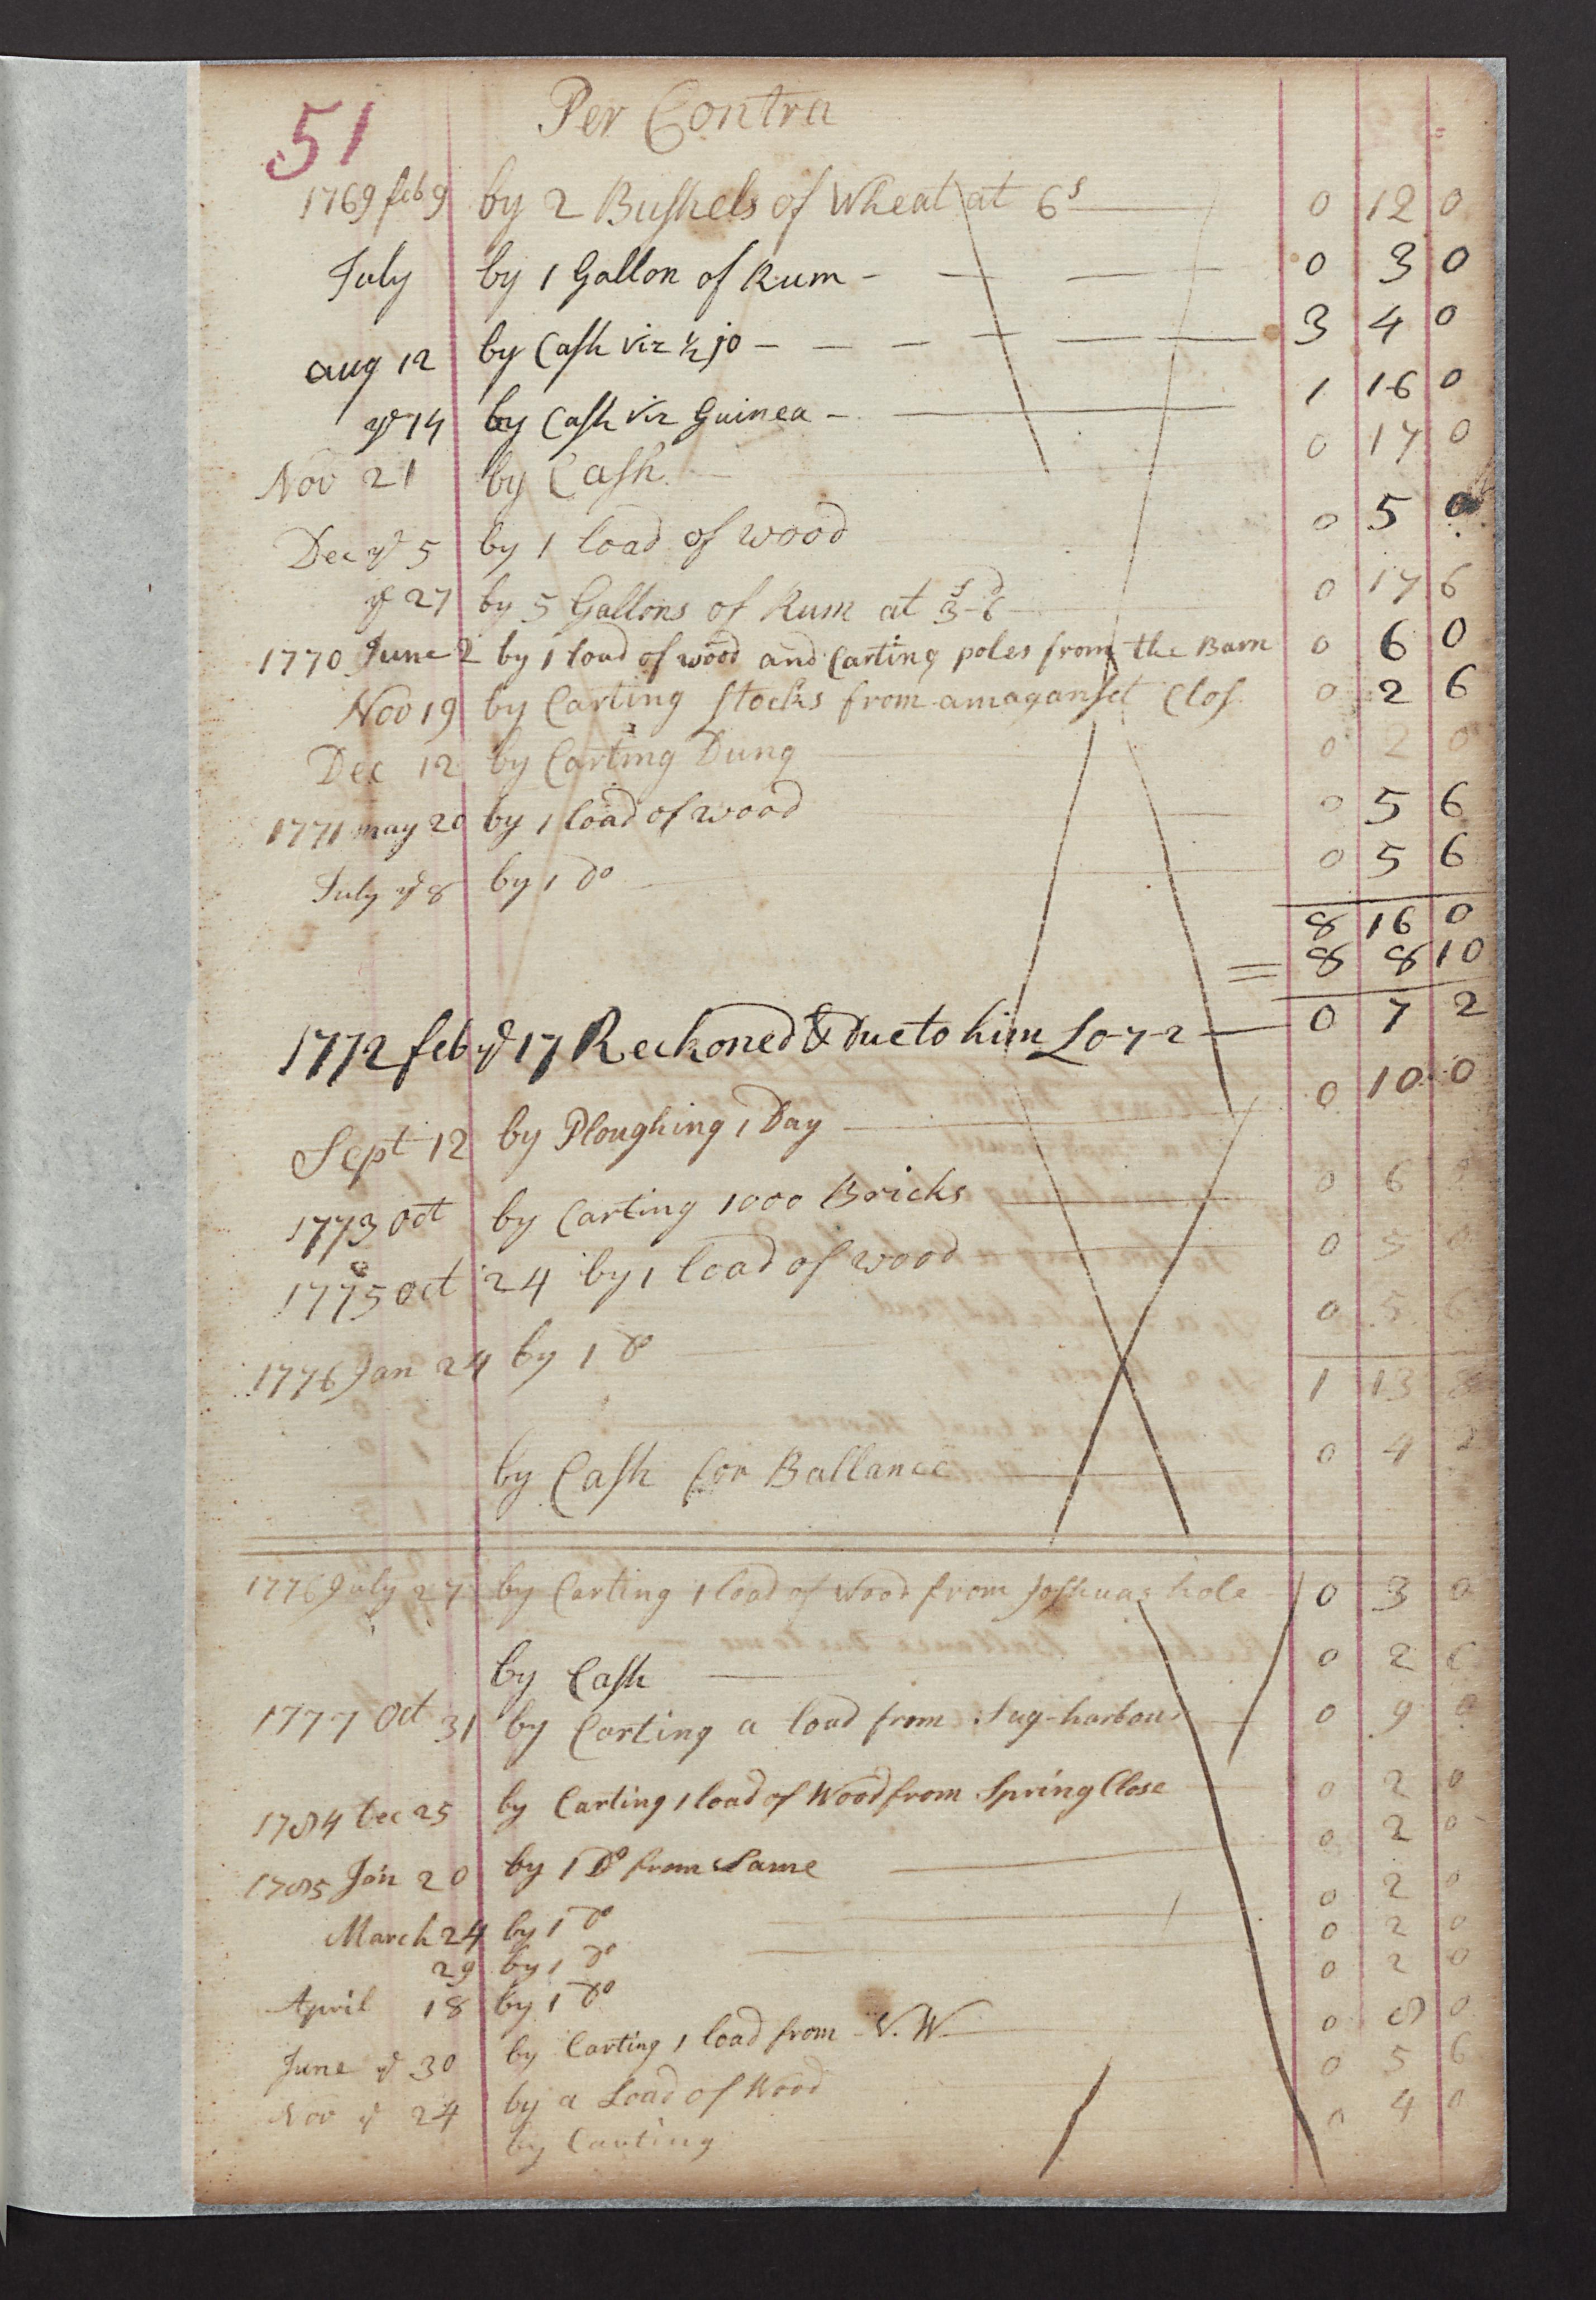 51 Per Contra
1769 feb 9 by 2 Bushels of Wheat at 6s 0 12 0
July by 1 Gallon of Rum - 0 3 0
aug 12 by Cash viz ½ jo - 3 4 0
ye 14 by Cash viz Guinea - 1 16 0
Nov 21 by Cash 0 17 0
Dec ye 5 by 1 load of wood 0 5 0
ye 27 by 5 Gallons of Rum at 3s-6d 0 17 6
1770 June 2 by 1 load of wood and Carting poles from the Barn 0 6 0
Nov 19 by Carting Stocks from amaganset Clos 0 2 6
Dec 12 by Carting Dung 0 2 0
1771 may 20 by 1 load of wood 0 5 6
July ye 8 by 1 do 0 5 6
8 16 0
8 8 10
1772 feb ye 17 Reckoned & Due to him £0-7-2 0 7 2
Sept 12 by Ploughing 1 Day 0 10 0
1773 Oct by Carting 1000 Bricks 0 6
1775 Oct 24 by 1 load of wood 0 5 0
1776 Jan 24 by 1 do 0 5 6
1 13 8
by Cash for Ballance 0 4 2
1776 July 27 by Carting 1 load of Wood from Joshuas hole 0 3 0
by Cash 0 2 6
1777 Oct 31 by Carting a load from Sag-harbour 0 9 0
1784 Dec 25 by Carting 1 load of Wood from Spring Close 0 2 0
1785 Jan 20 by 1 Do from Same 0 2 0
March 24 by 1 do 0 2 0
29 by 1 do 0 2 0
April 18 by 1 do 0 2 0
June ye 30 by Carting 1 load from N.W. 0 8 0
Nov ye 24 by a Load of Wood 0 5 6
by Carting 0 4 0